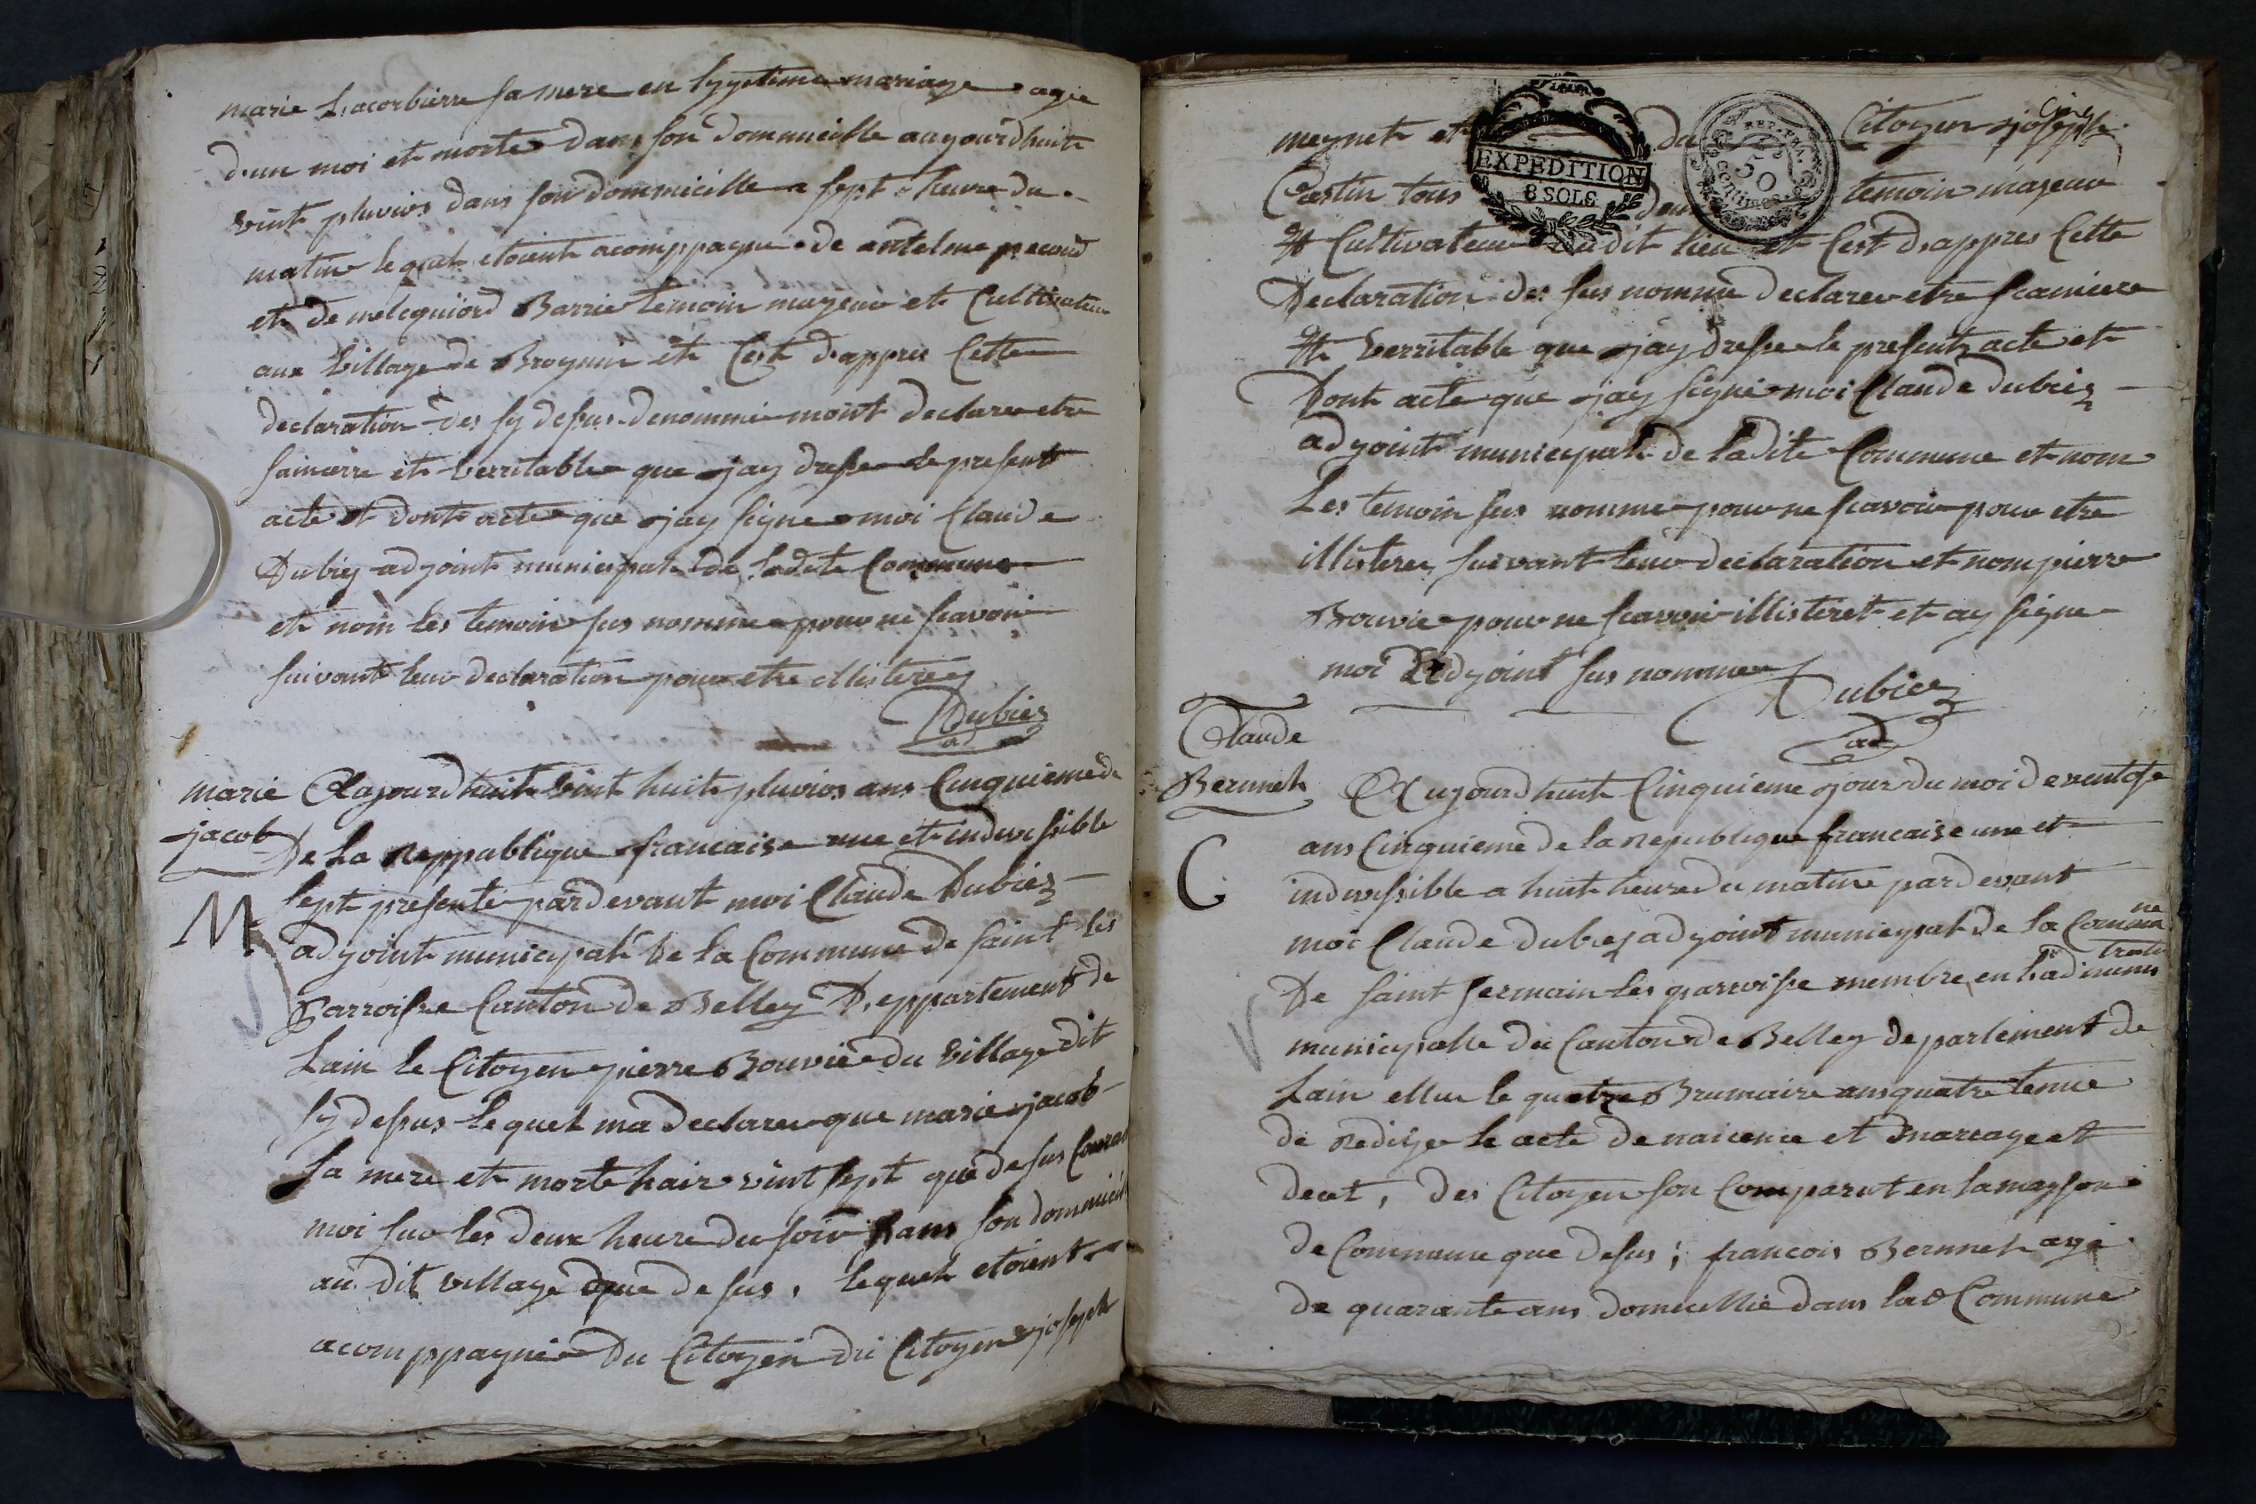 marie Lacorbierre sa mere en lygetime mariage agee
d'un moi et morte dans son dommicille aujourdhuit
vint pluvios dans son dommicille a sept heure du
matin lequel etoient acomppagne de antelme pecoud
et de melcquiord Barrie temoin majeur et Cultivateur
aux village de Brognin et Cest dappres Cette
declaration des sy desus denomme mont declare etre
saincerre et verritable que jay drese le present
acte et dont acte que jay signe moi Claude
Dubiez adjoint municipal de ladite Commune
et nom les temoin sus nomme pour ne scavoir
suivant leur declaration pour etre illistere
Dubiez
ad
marie
jacob
M
Aajourdhuit vint huit pluvios ans Cinquieme de
De la Reppablique francaise une et indivisible
sept presente pardevant moi Claude Dubiez
adjoint municipal De la Commune de saint les
Parroisse Canton de Belley Deppartement de
Lain le Citoyen pierre Bouvie du village dit
sy desus lequel ma declare que marie jacob
sa mere et morte hair vint sept que desus Couran
moi sur les deux heure du soir dans son dommicil
au dit village que desus, lequel etoient
acomppagnie Du Citoyen du Citoyen joseph
meynet et du Citoyen joseph
EXPEDITION
8 SOLS
REP. FRA.
50
centimes
Crestin tous deux temoin majeur
Et Cultivateur du dit lieu et Cest dappres Cette
Declaration des sus nomme declare etre scainciere
Et verritable que jay drese le present acte et
Dont acte que jay signe moi Claude dubiez
adjoint municipal de ladite Commune et nom
Les temoin sus nomme pour ne scavoir pour etre
illistere suivant leur declaration et nom pierre
Bouvie pour ne scavoir illisteret et ay signe
moi adjoint sus nomme Dubiez
ad
Claude
Berunet
C
Aujourdhuit Cinquieme jour du moi de ventose
ans Cinquieme de la Republique francaise une et
indivisible a huit heure du matin pardevant
moi Claude dubiez adjoint municipal de la Commune
De saint germain les parroisse membre en Ladiminis
tration
municipalle du Canton de Belley departement de
Lain ellue le quatre Brumaire ans quatre tenue
de Redige le acte de naicence et mareage et
decet, des Citoyen son Comparut en la mayson
de Commune que desus; francois Berunet age
de quarante ans domicillie dans lad Commune